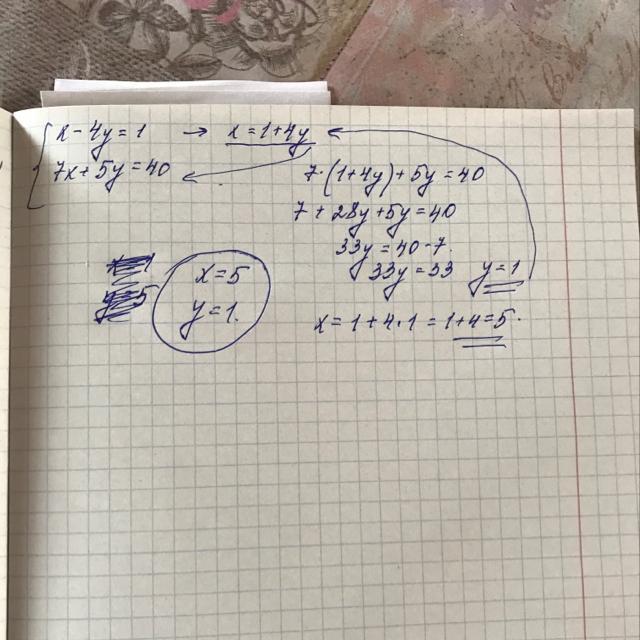 x - 4y = 1 → x = 1 + 4y
7x + 5y = 40
7 · (1 + 4y) + 5y = 40
7 + 28y + 5y = 40
33y = 40 - 7.
33y = 33 y = 1
x = 1 + 4 · 1 = 1 + 4 = 5.
x = 5
y = 1.